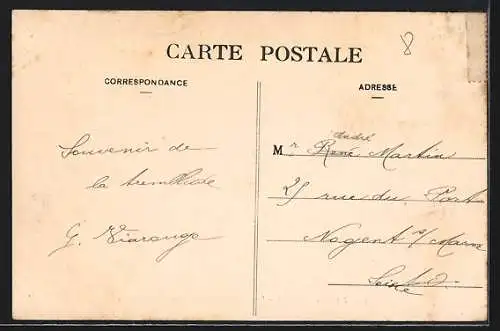 8
CARTE POSTALE
CORRESPONDANCE
Souvenir de
la tremblade
G.
ADRESSE
André
Mr René Martin
25 rue du Port
Nogent s/ Marne
Seine